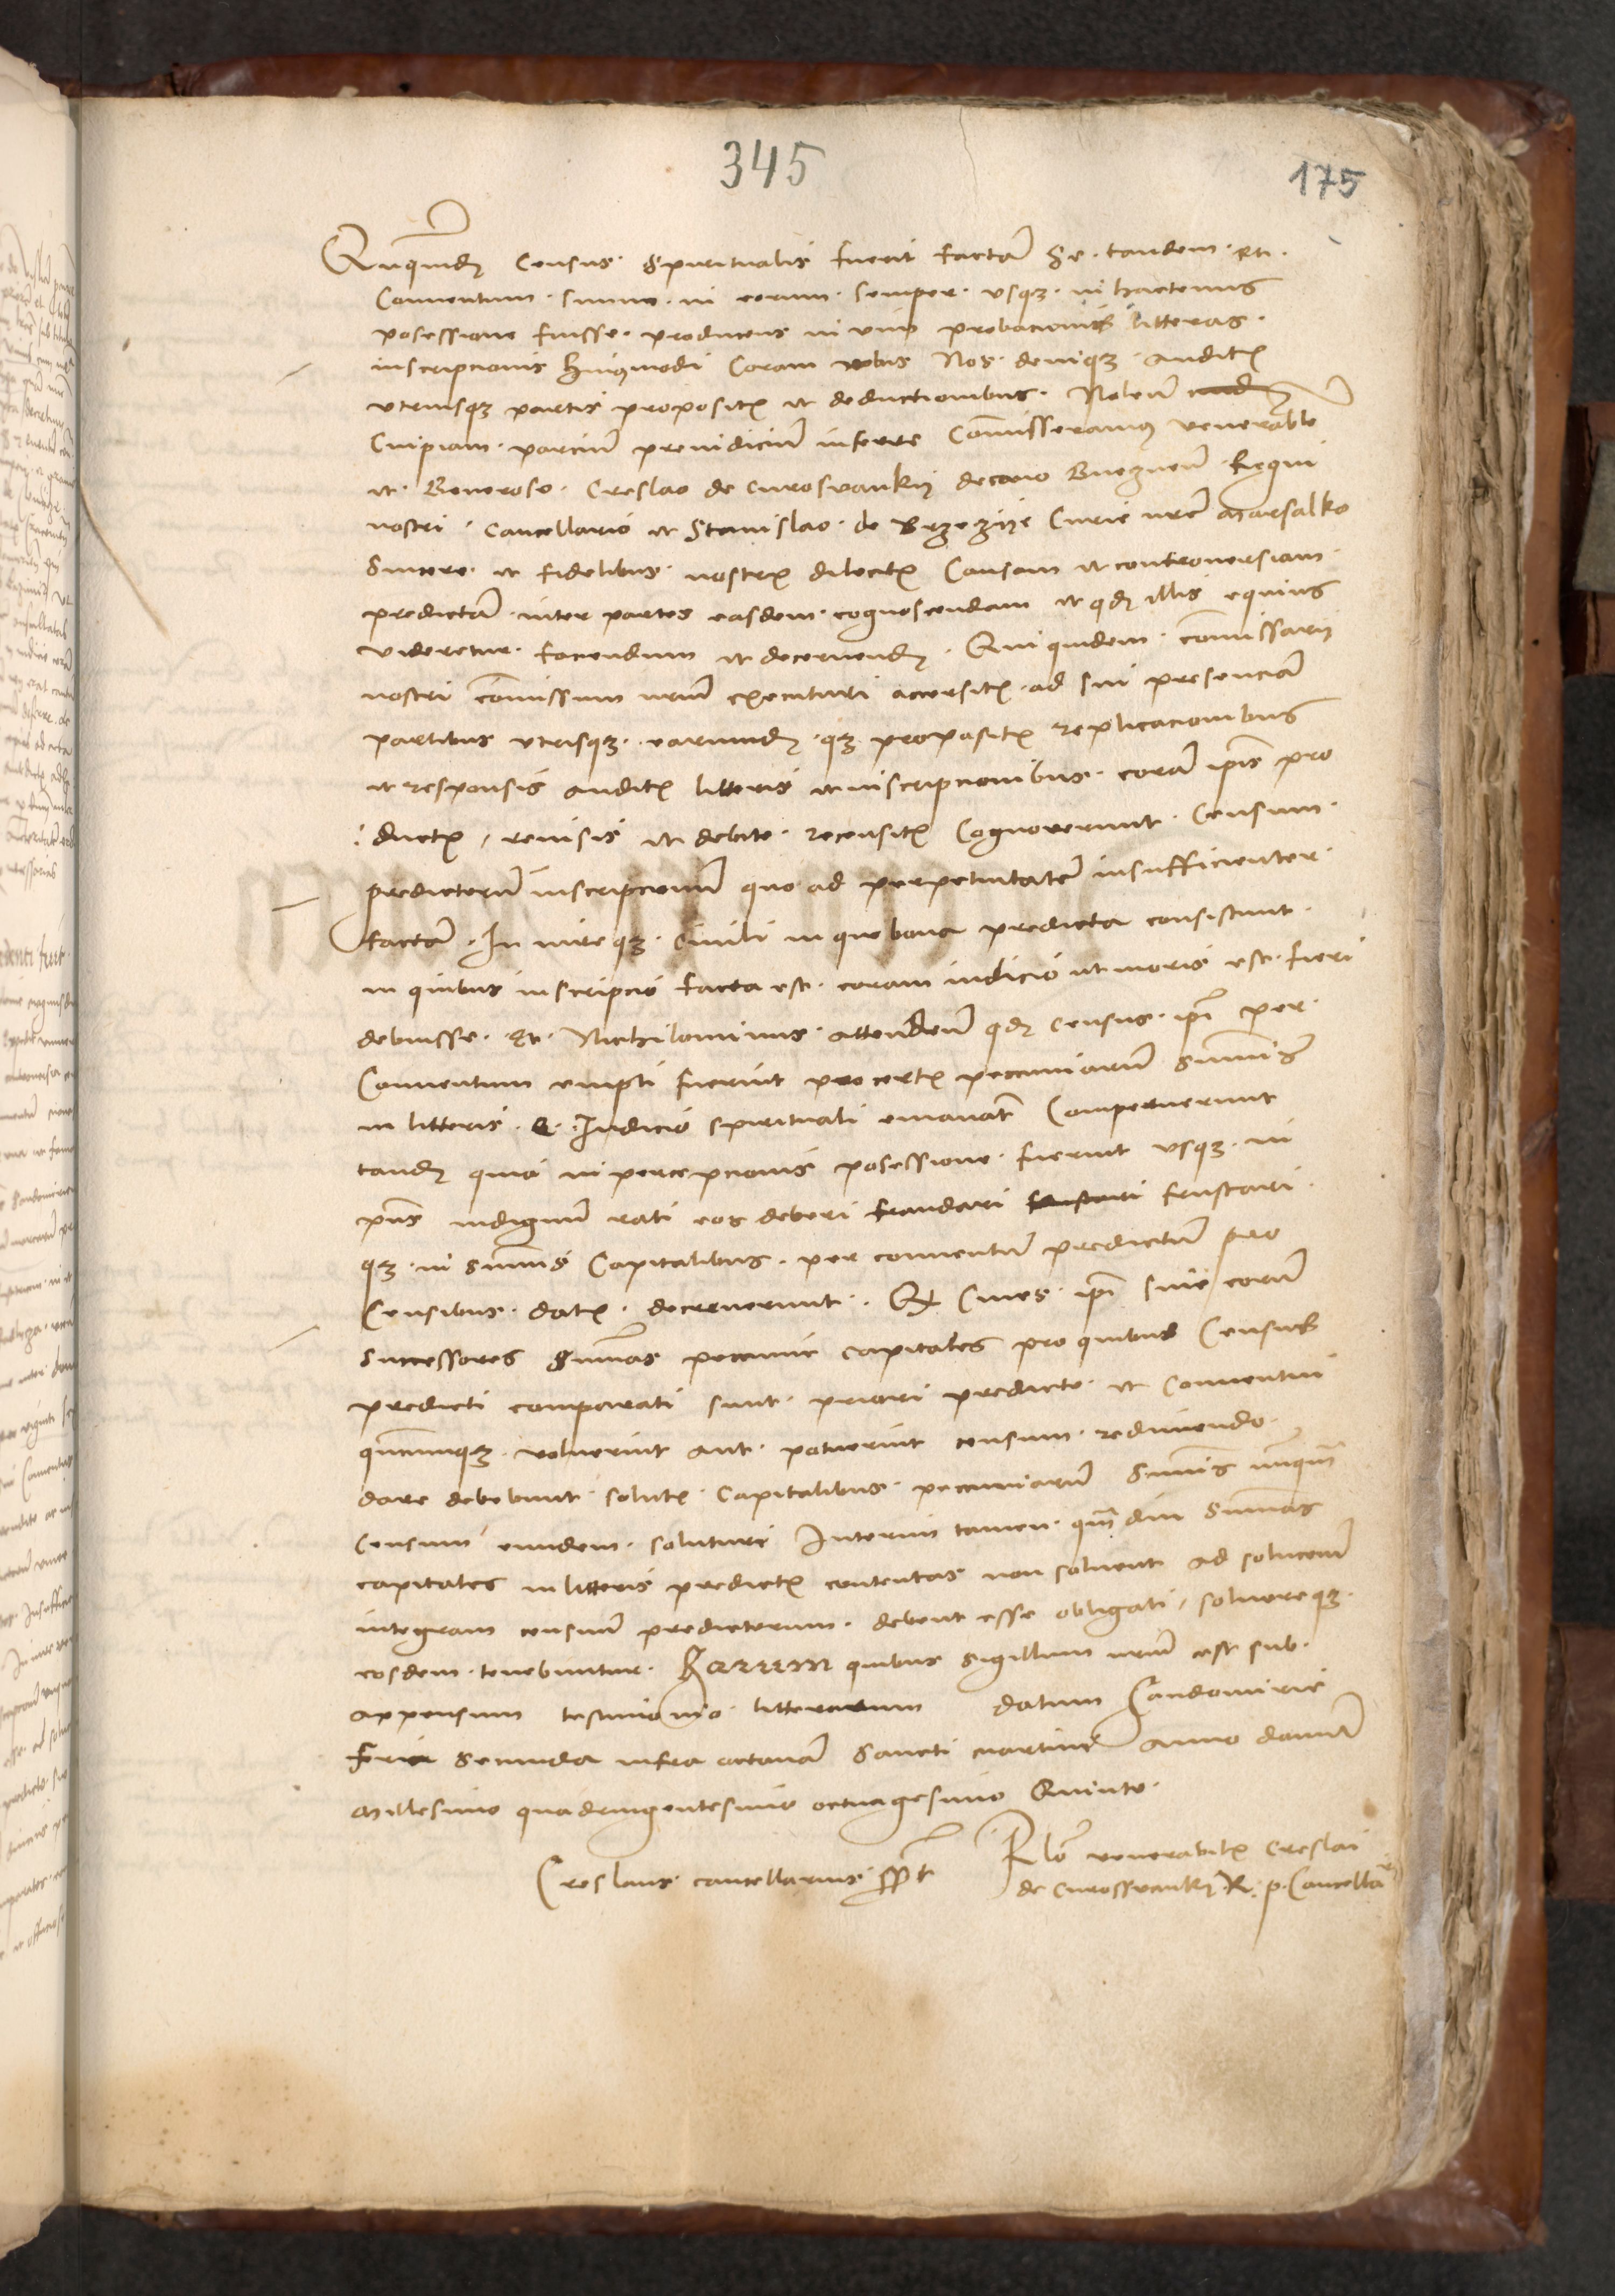 345
175
Quĩquidẽ Census Spiritualis fuerit factã Se tandem et
Conuentum suum in eorum semper vsq3 in hactenus
posessione fuisse producens in vim probacionis litteras
inscripcionis huiusmodi Coram nobis Nos deniq3 auditis
vtriusq3 partis propositis et deductionibus Nolentes
Cuipiam parcium preiudiciũ inferre Cõmisseramus venerabili
et Generoso Creslao de Curoswankij decano Gneznen Regni
nostri Cancellario et Stanislao de Brzezije Curie nrẽ Marsalko
Sincere et fidelibus nostris dilectis Causam et controuersiam
predictã inter partes easdem cognoscendam et qd illis equius
videretur faciendum et decernendũ Qui quidem cõmissarij
nostri cõmissum nrũm executuri accersitis ad sui presenciã
partibus vtrisq3 earundẽ q3 propositis replicacionibus
et responsis auditis litteris et inscripcionibus corã ipis pro
ductis reuisis et debite recensitis Cognouerunt Censum
predictorũ inscripcionũ quo ad perpetuitatẽ insufficienter
factã In iure q3 Ciuili in quo bona predicta consistunt
in quibus inscripcio facta est coram iudicio ut moris est fieri
debuisse Et Nichilominus attenden qd census ipi per
Conuentum empti fuerint pro certis pecuniarũ sum̃is
in litteris e Iudicio spirituali emanat Comperuerunt
tandẽ quia in percepcionis posessione fuerint vsq3 in
pñs indignũ rati eos deberi fraudari frustari frustrari
q3 in sum̃is Capitalibus per conuentũ predictũ pro
Censibus datis decreuerunt Q Ciues ipi siue eorũ
Successores Sum̃as pecunie capitales pro quibus Census
predicti comparati sunt priori predicto et Conuentui
quãcumq3 voluerint aut potuerint censum redimendo
dare debebunt solutis Capitalibus pecuniarũ Sum̃is nunqũ
Censum eundem soluturi Interim tamen qũ diu Sum̃as
capitales in litteris predictis contentas non soluent ad soluconẽ
integram censuũ predictorum debent esse obligati soluereq3
eosdem tenebuntur Harum quibus Sigillum nrũm est sub
appensum testimonio litterarum datum Sandomirie
Feria Secunda infra octauã Sancti Martini Anno domini
Millesimo quadringentesimo octuagesimo Quinto
Creslaus cancellarius sspt Rlo venerabilis Creslai
de Curosswankij R. p. Cancellar